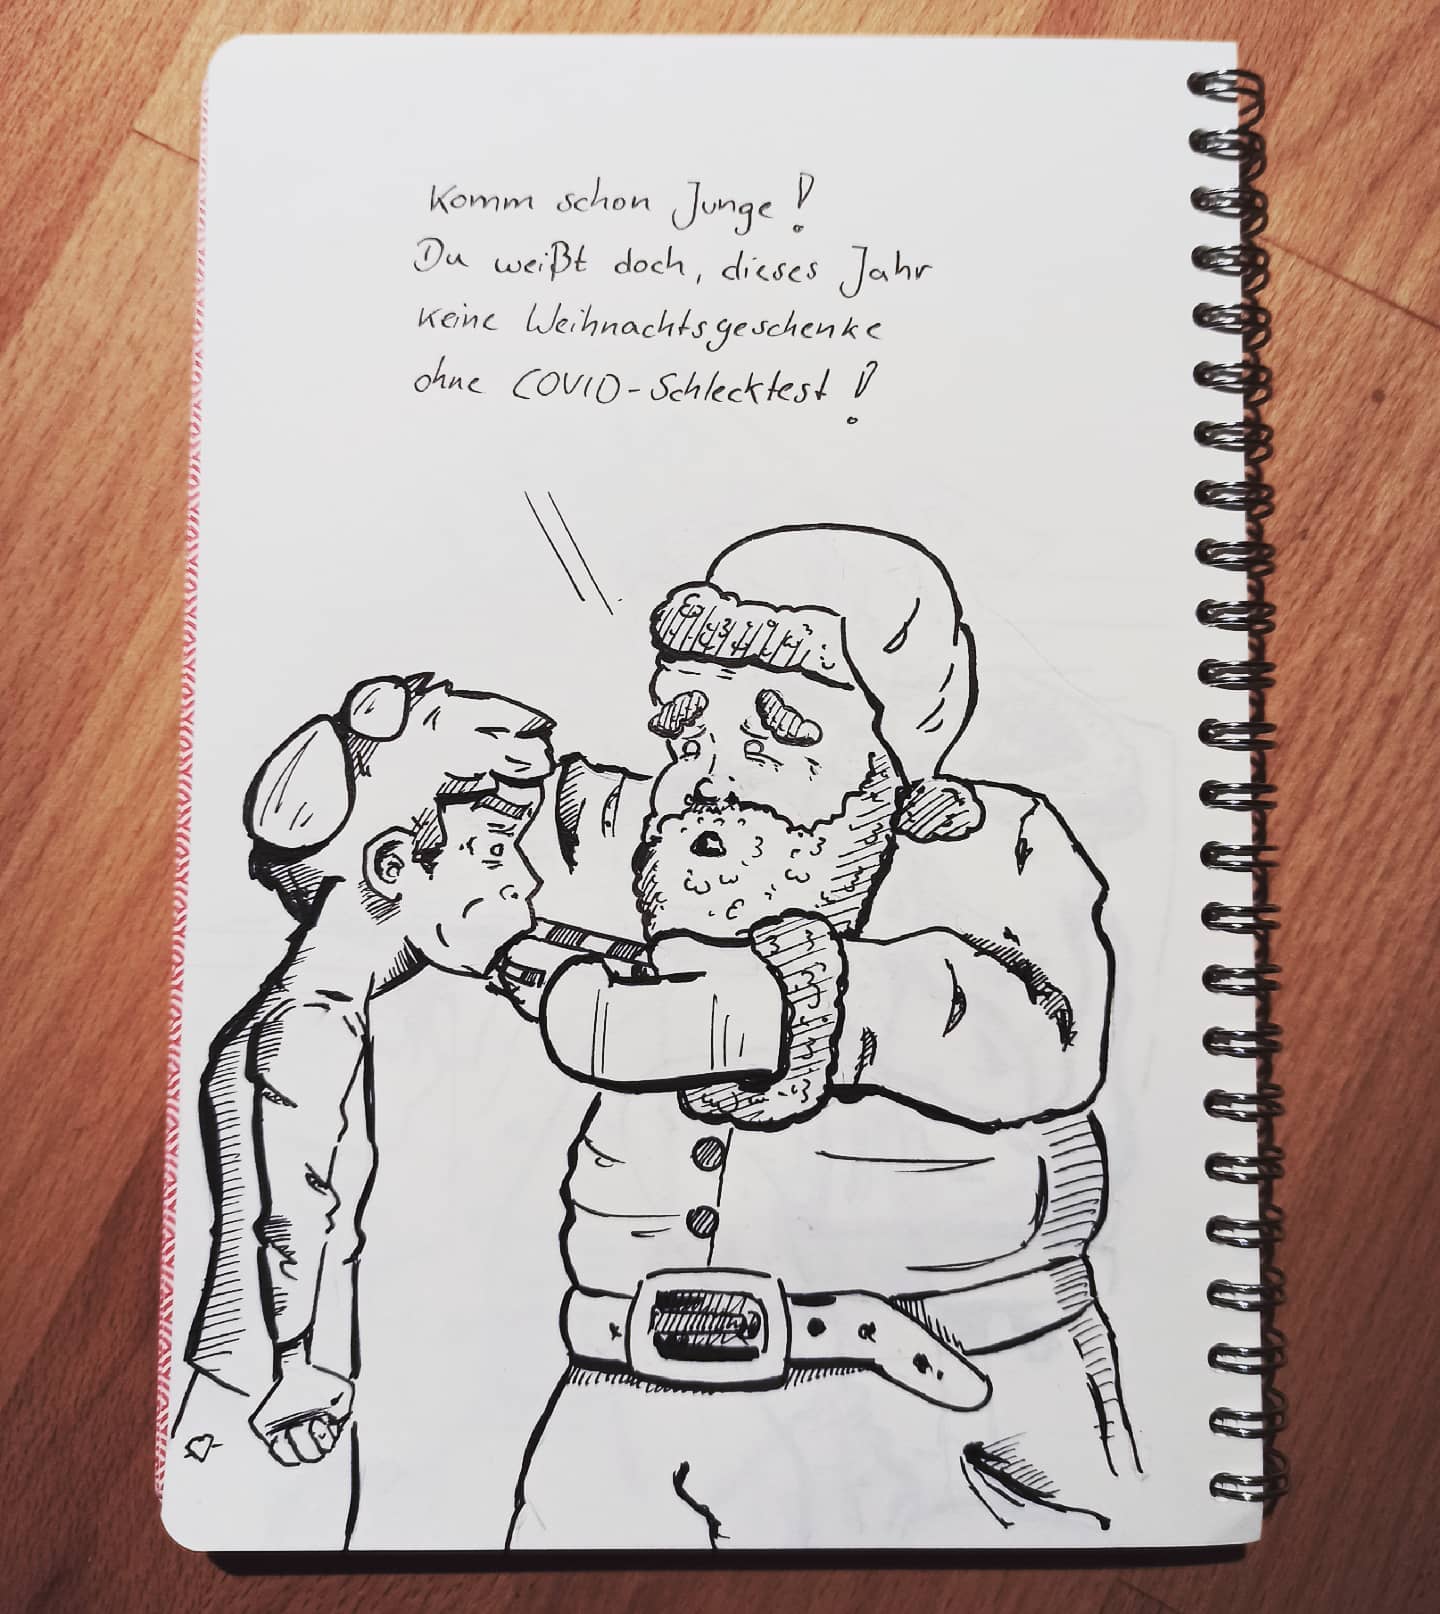 Komm schon Junge!
Du weißt doch, dieses Jahr
keine Weihnachtsgeschenke
ohne COVID-Schlecktest!